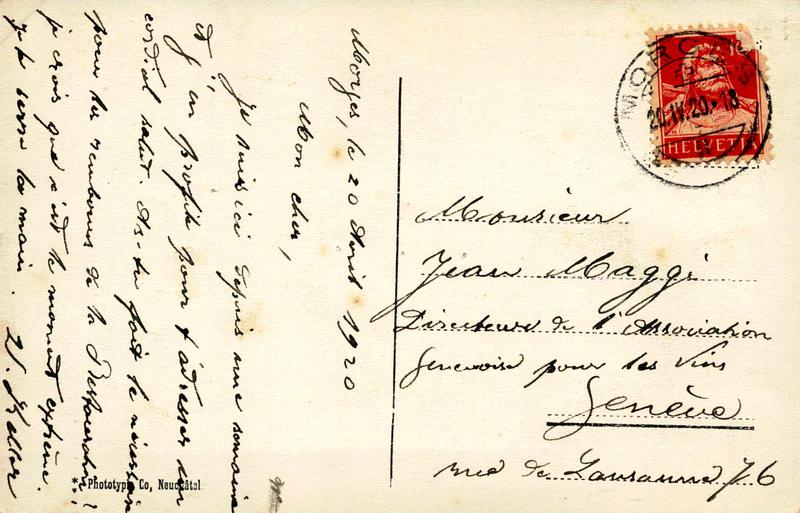 Morges, le 20 Avril 1920
Mon cher,
Je suis ici depuis une semaine
et j'en profite pour t'adresser un
cordial salut. As-tu fait le nécessaire
pour les tambours de la
je crois que c'est le moment extrême.
Je te serre la main.
* Phototypie Co, Neuchâtel
MORGES
20.IV.20.-18
HELVETIA
Monsieur
Jean Maggi
Directeur de l'Association
Genevoise pour les Vins
Genève
rue de Lausanne 76